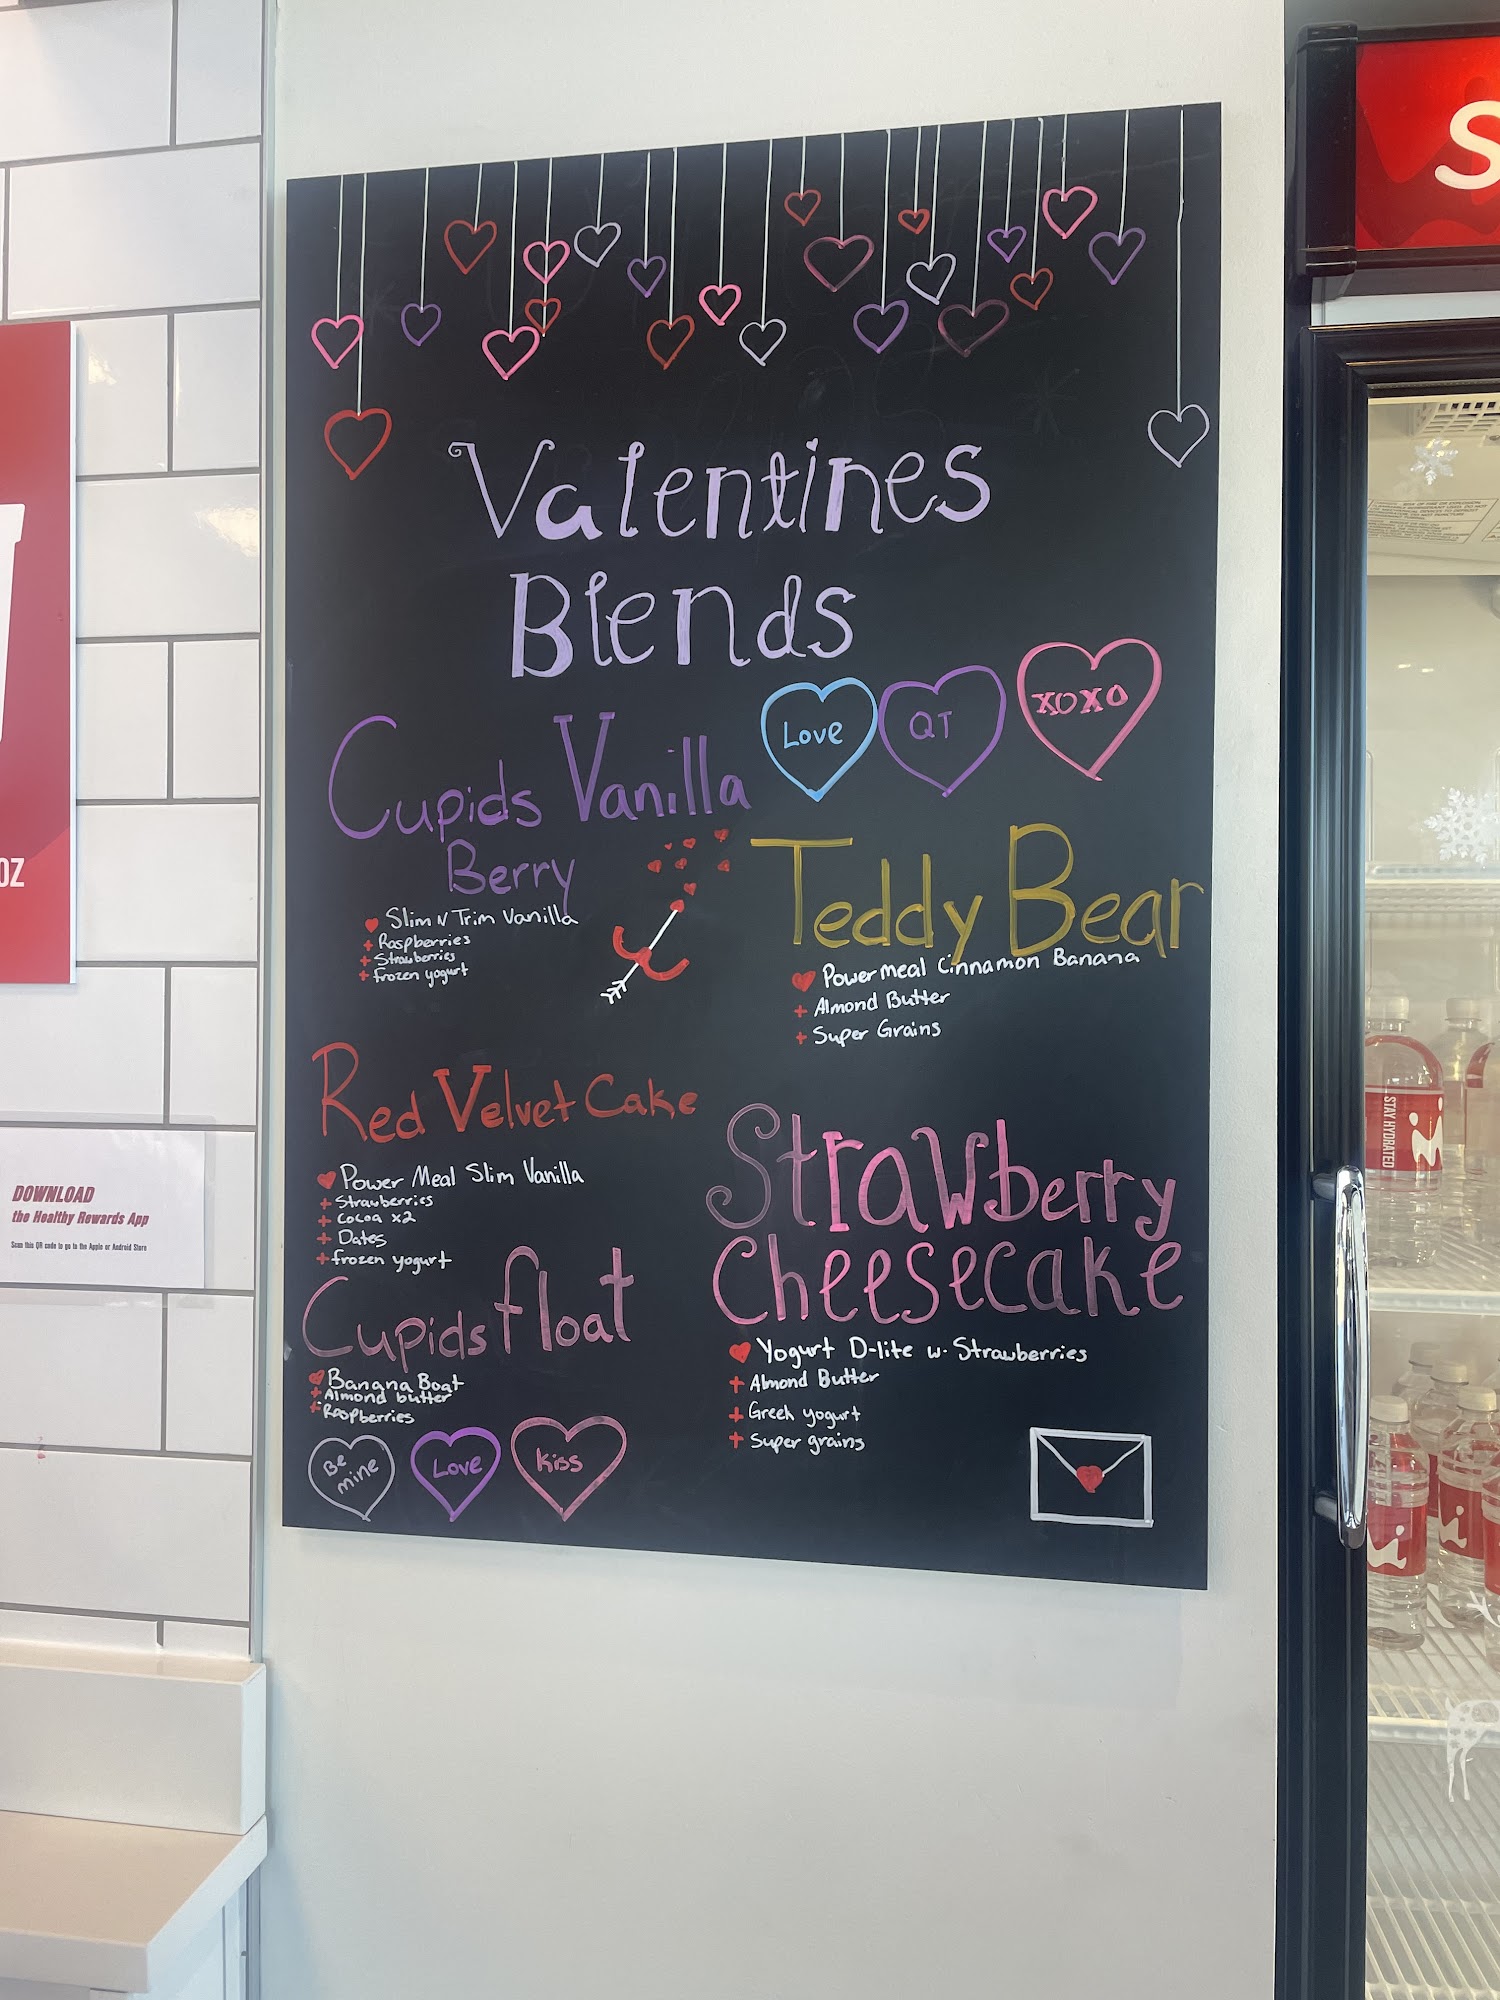 Valentines
Blends
Love
QT
XOXO
Cupids Vanilla
Berry
Slim N Trim Vanilla
+ Raspberries
+ Strawberries
+ frozen yogurt
Teddy Bear
Power meal Cinnamon Banana
+ Almond Butter
+ Super Grains
Red Velvet Cake
Power Meal Slim Vanilla
+ Strawberries
+ Cocoa x2
+ Dates
+ frozen yogurt
Strawberry
Cheesecake
Yogurt D-lite w. Strawberries
+ Almond Butter
+ Greek yogurt
+ Super grains
Cupids float
Banana Boat
+ Almond butter
+ Raspberries
Be
mine
Love
Kiss
OZ
DOWNLOAD
the Healthy Rewards App
Scan this QR code to go to the Apple or Android Store
S
STAY HYDRATED